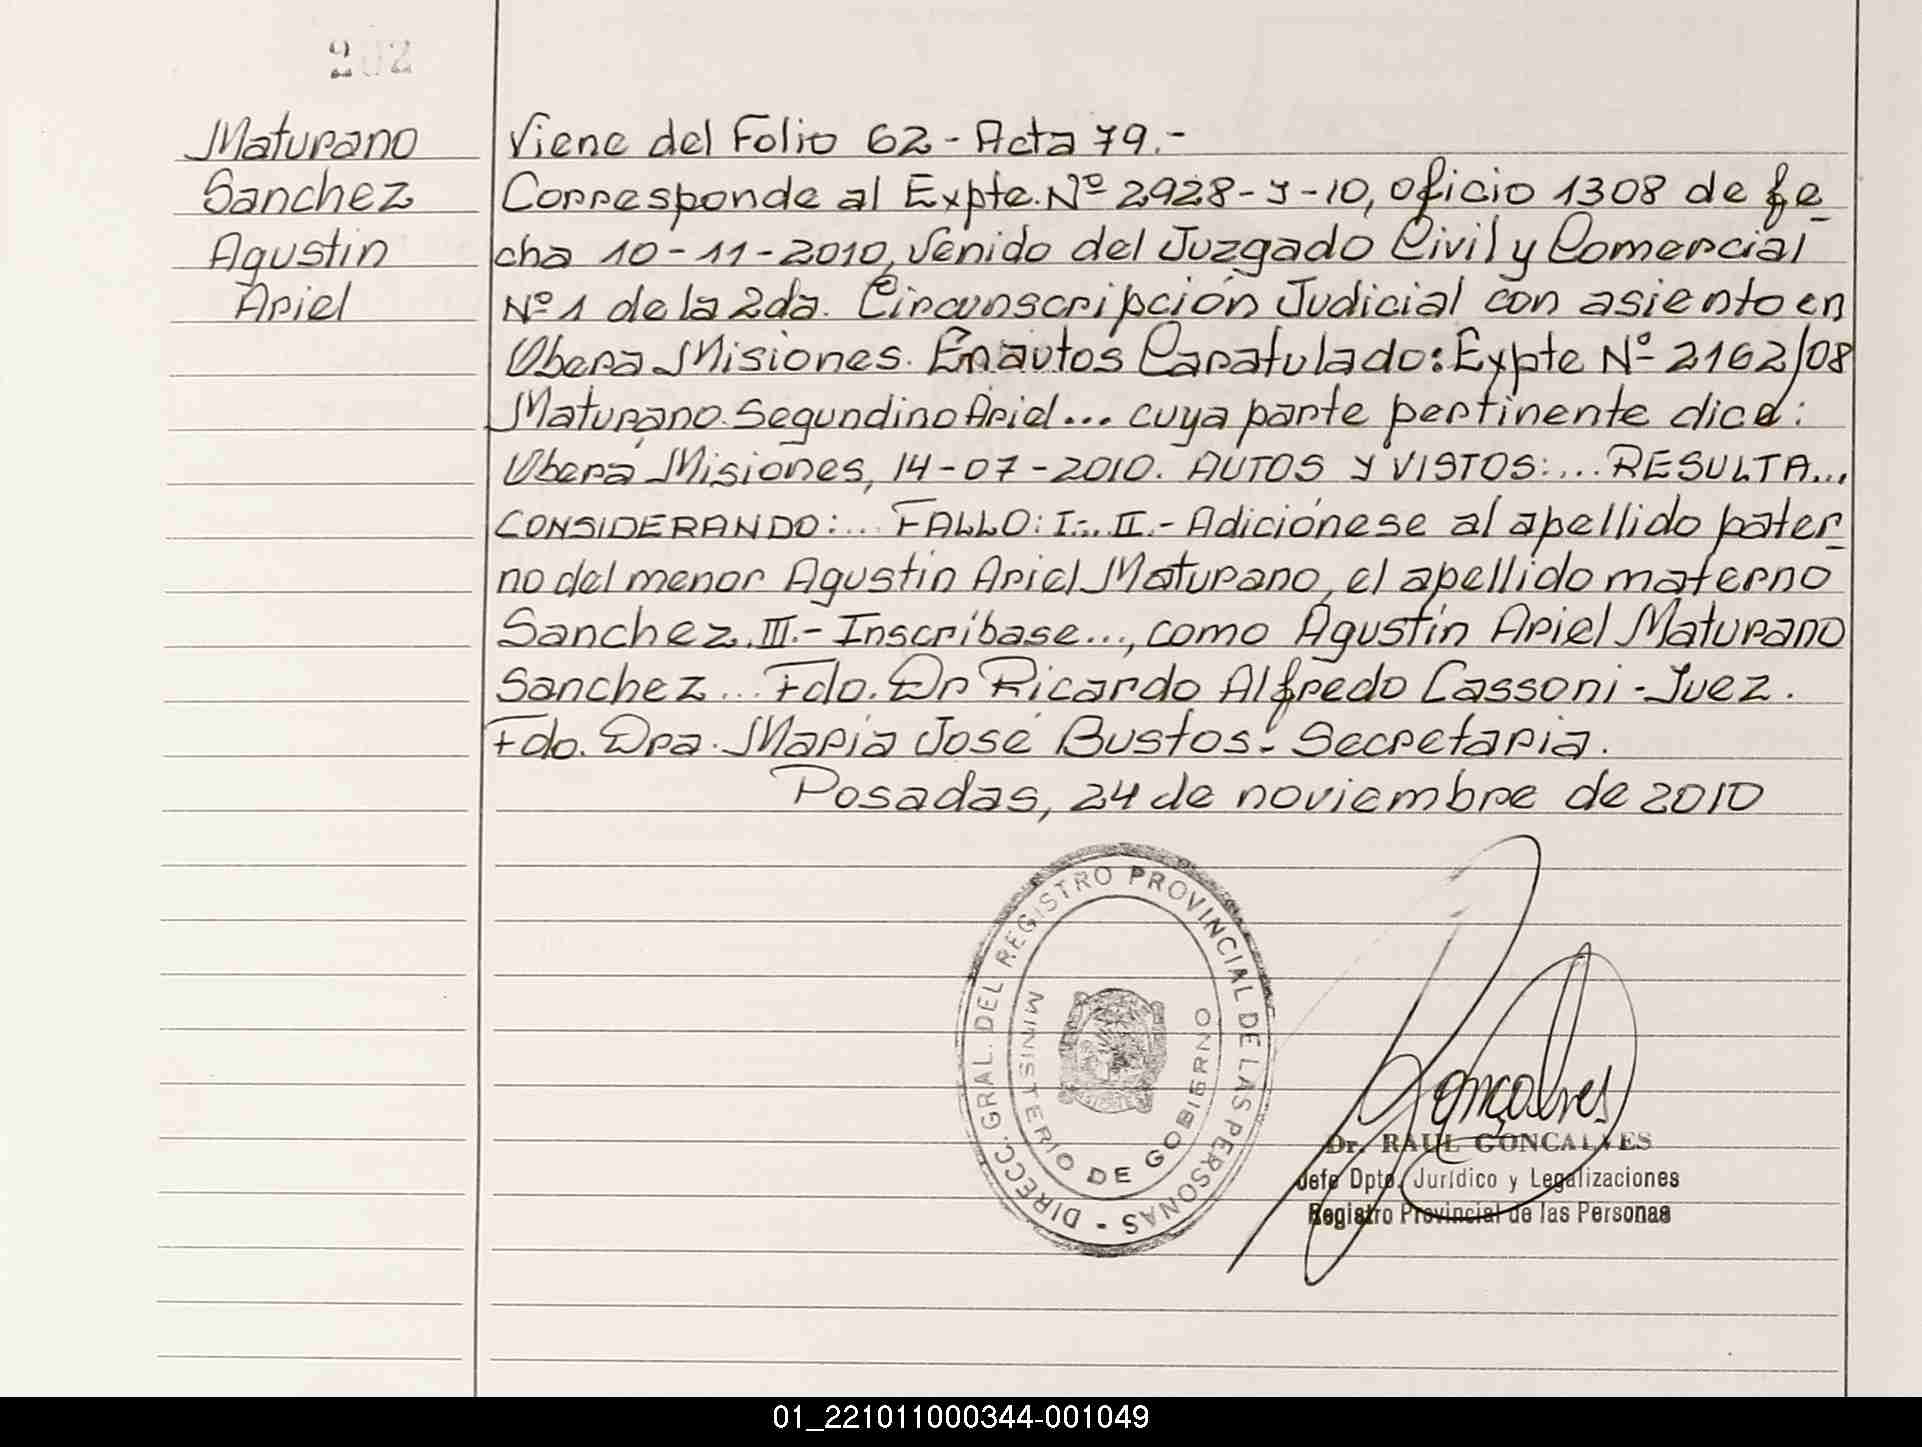 202
Maturano
Sanchez
Agustin
Ariel
Viene del Folio 62 - Acta 79.-
Corresponde al Expte. Nº 2928-J-10, oficio 1308 de fe-
cha 10-11-2010, Venido del Juzgado Civil y Comercial
Nº 1 de la 2da. Circunscripción Judicial con asiento en
Obera Misiones. En autos Caratulado: Expte Nº 2162/08
Maturano Segundino Ariel... cuya parte pertinente dice:
Oberá Misiones, 14-07-2010. AUTOS Y VISTOS:... RESULTA...
CONSIDERANDO:... FALLO: I-... II.- Adiciónese al apellido pater-
no del menor Agustín Ariel Maturano, el apellido materno
Sanchez. III.- Inscríbase..., como Agustín Ariel Maturano
Sanchez... Fdo. Dr Ricardo Alfredo Cassoni - Juez.
Fdo. Dra. Maria José Bustos - Secretaria.
Posadas, 24 de noviembre de 2010
DIRECC. GRAL. DEL REGISTRO PROVINCIAL DE LAS PERSONAS -
MINISTERIO DE GOBIERNO
Goncalves
Dr. RAUL GONCALVES
Jefe Dpto. Jurídico y Legalizaciones
Registro Provincial de las Personas
01_221011000344-001049